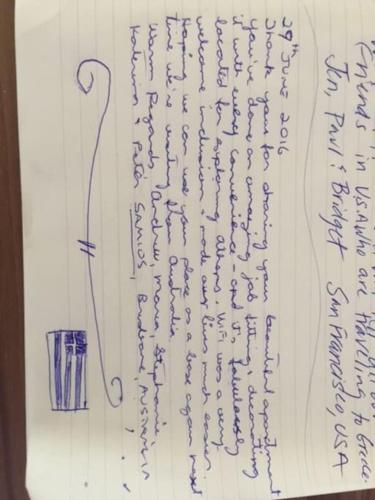 friends in USA who are traveling to Greece.
Jen, Paul & Bridget San Francisco, USA
29th June 2016
Thank you for sharing your beautiful apartment
you've done an amazing job fitting & decorating
it with every convenience - and it's fabulously
located for exploring Athens. Wifi was a very
welcome inclusion & made our lives much easier.
Hoping we can use your place as a base again next
time we're visiting from Australia
Warm Regards Andrew, Maria, Stephanie,
Katerina & Peter SAMIOS, Brisbane, AUSTRALIA